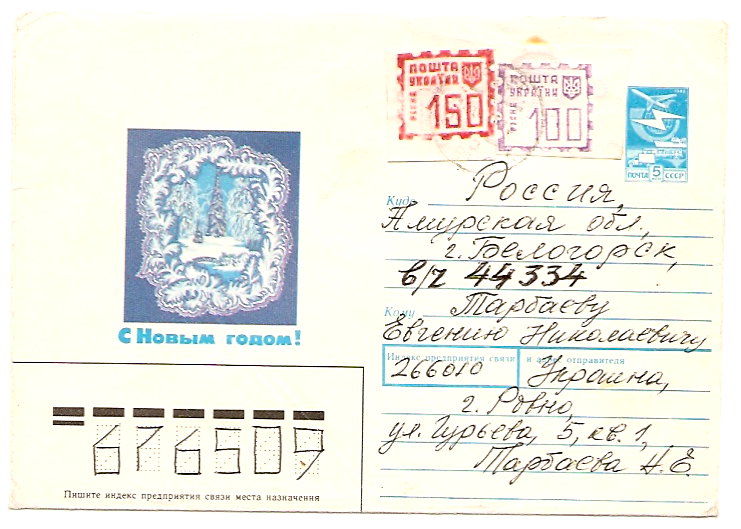 ПОШТА
УКРАЇНИ
РІВНЕ
150
ПОШТА
УКРАЇНИ
РІВНЕ
100
ПОЧТА 5 СССР
С Новым годом!
Куда Россия,
Амурская обл.,
г. Белогорск,
в/ч 44334
Кому Тарбаеву
Евгению Николаевичу
Индекс предприятия связи и адрес отправителя
266010 Украина,
г. Ровно,
ул. Гурьева, 5, кв. 1,
Тарбаева Н.Е.
676509
Пишите индекс предприятия связи места назначения